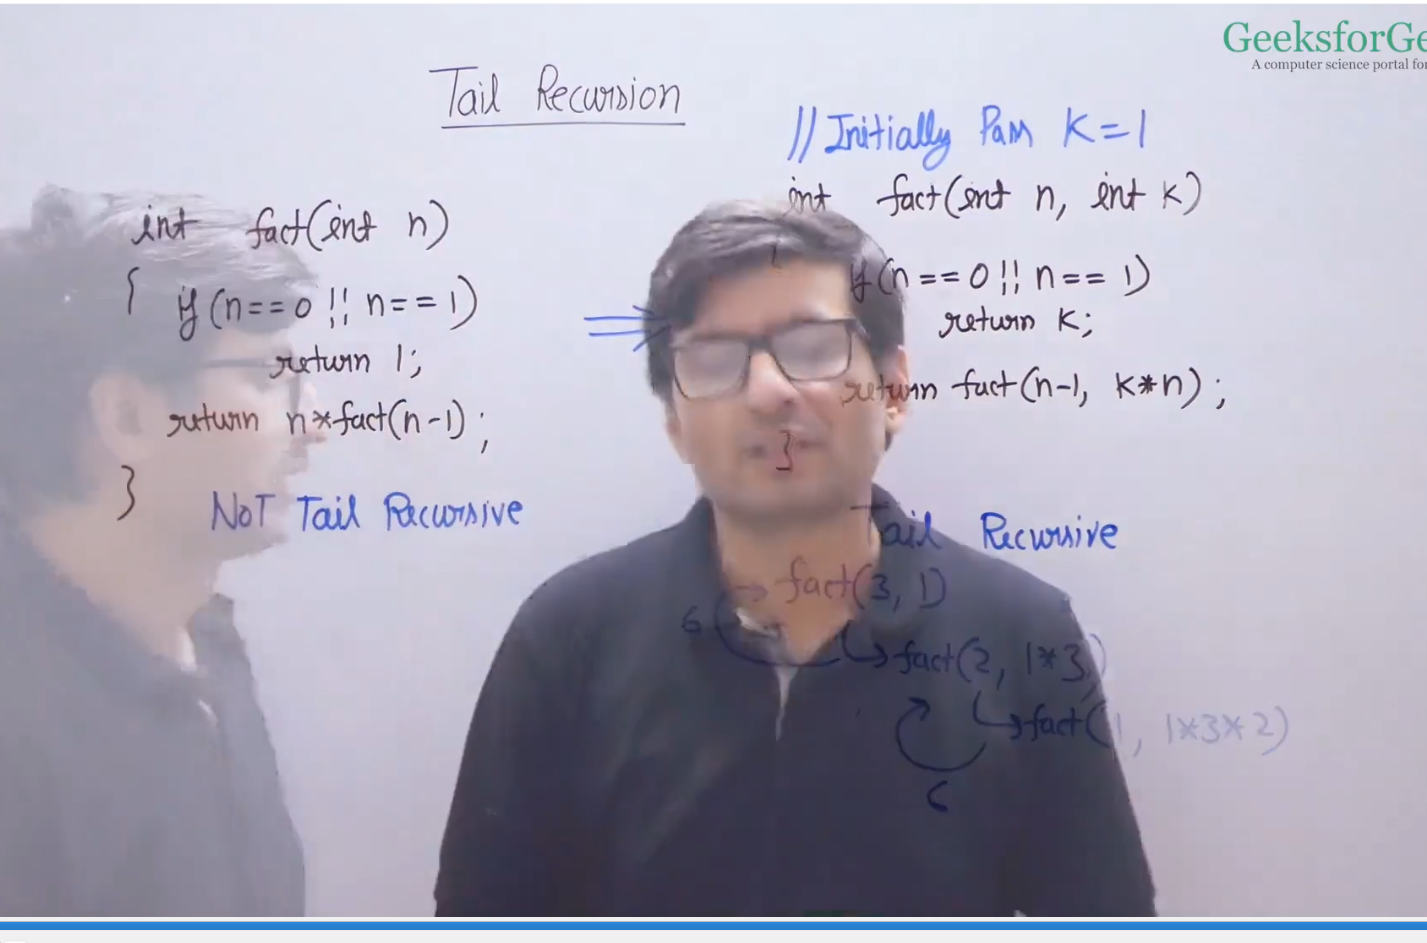 GeeksforGe
A computer science portal for
Tail Recursion
int fact(int n)
{ if(n==0 || n==1)
return 1;
return n*fact(n-1);
}
NOT Tail Recursive
// Initially Pass K=1
int fact(int n, int k)
{
if(n==0 || n==1)
return k;
return fact(n-1, k*n);
}
Tail Recursive
→ fact(3, 1)
6
↳ fact(2, 1*3)
↳ fact(1, 1*3*2)
6